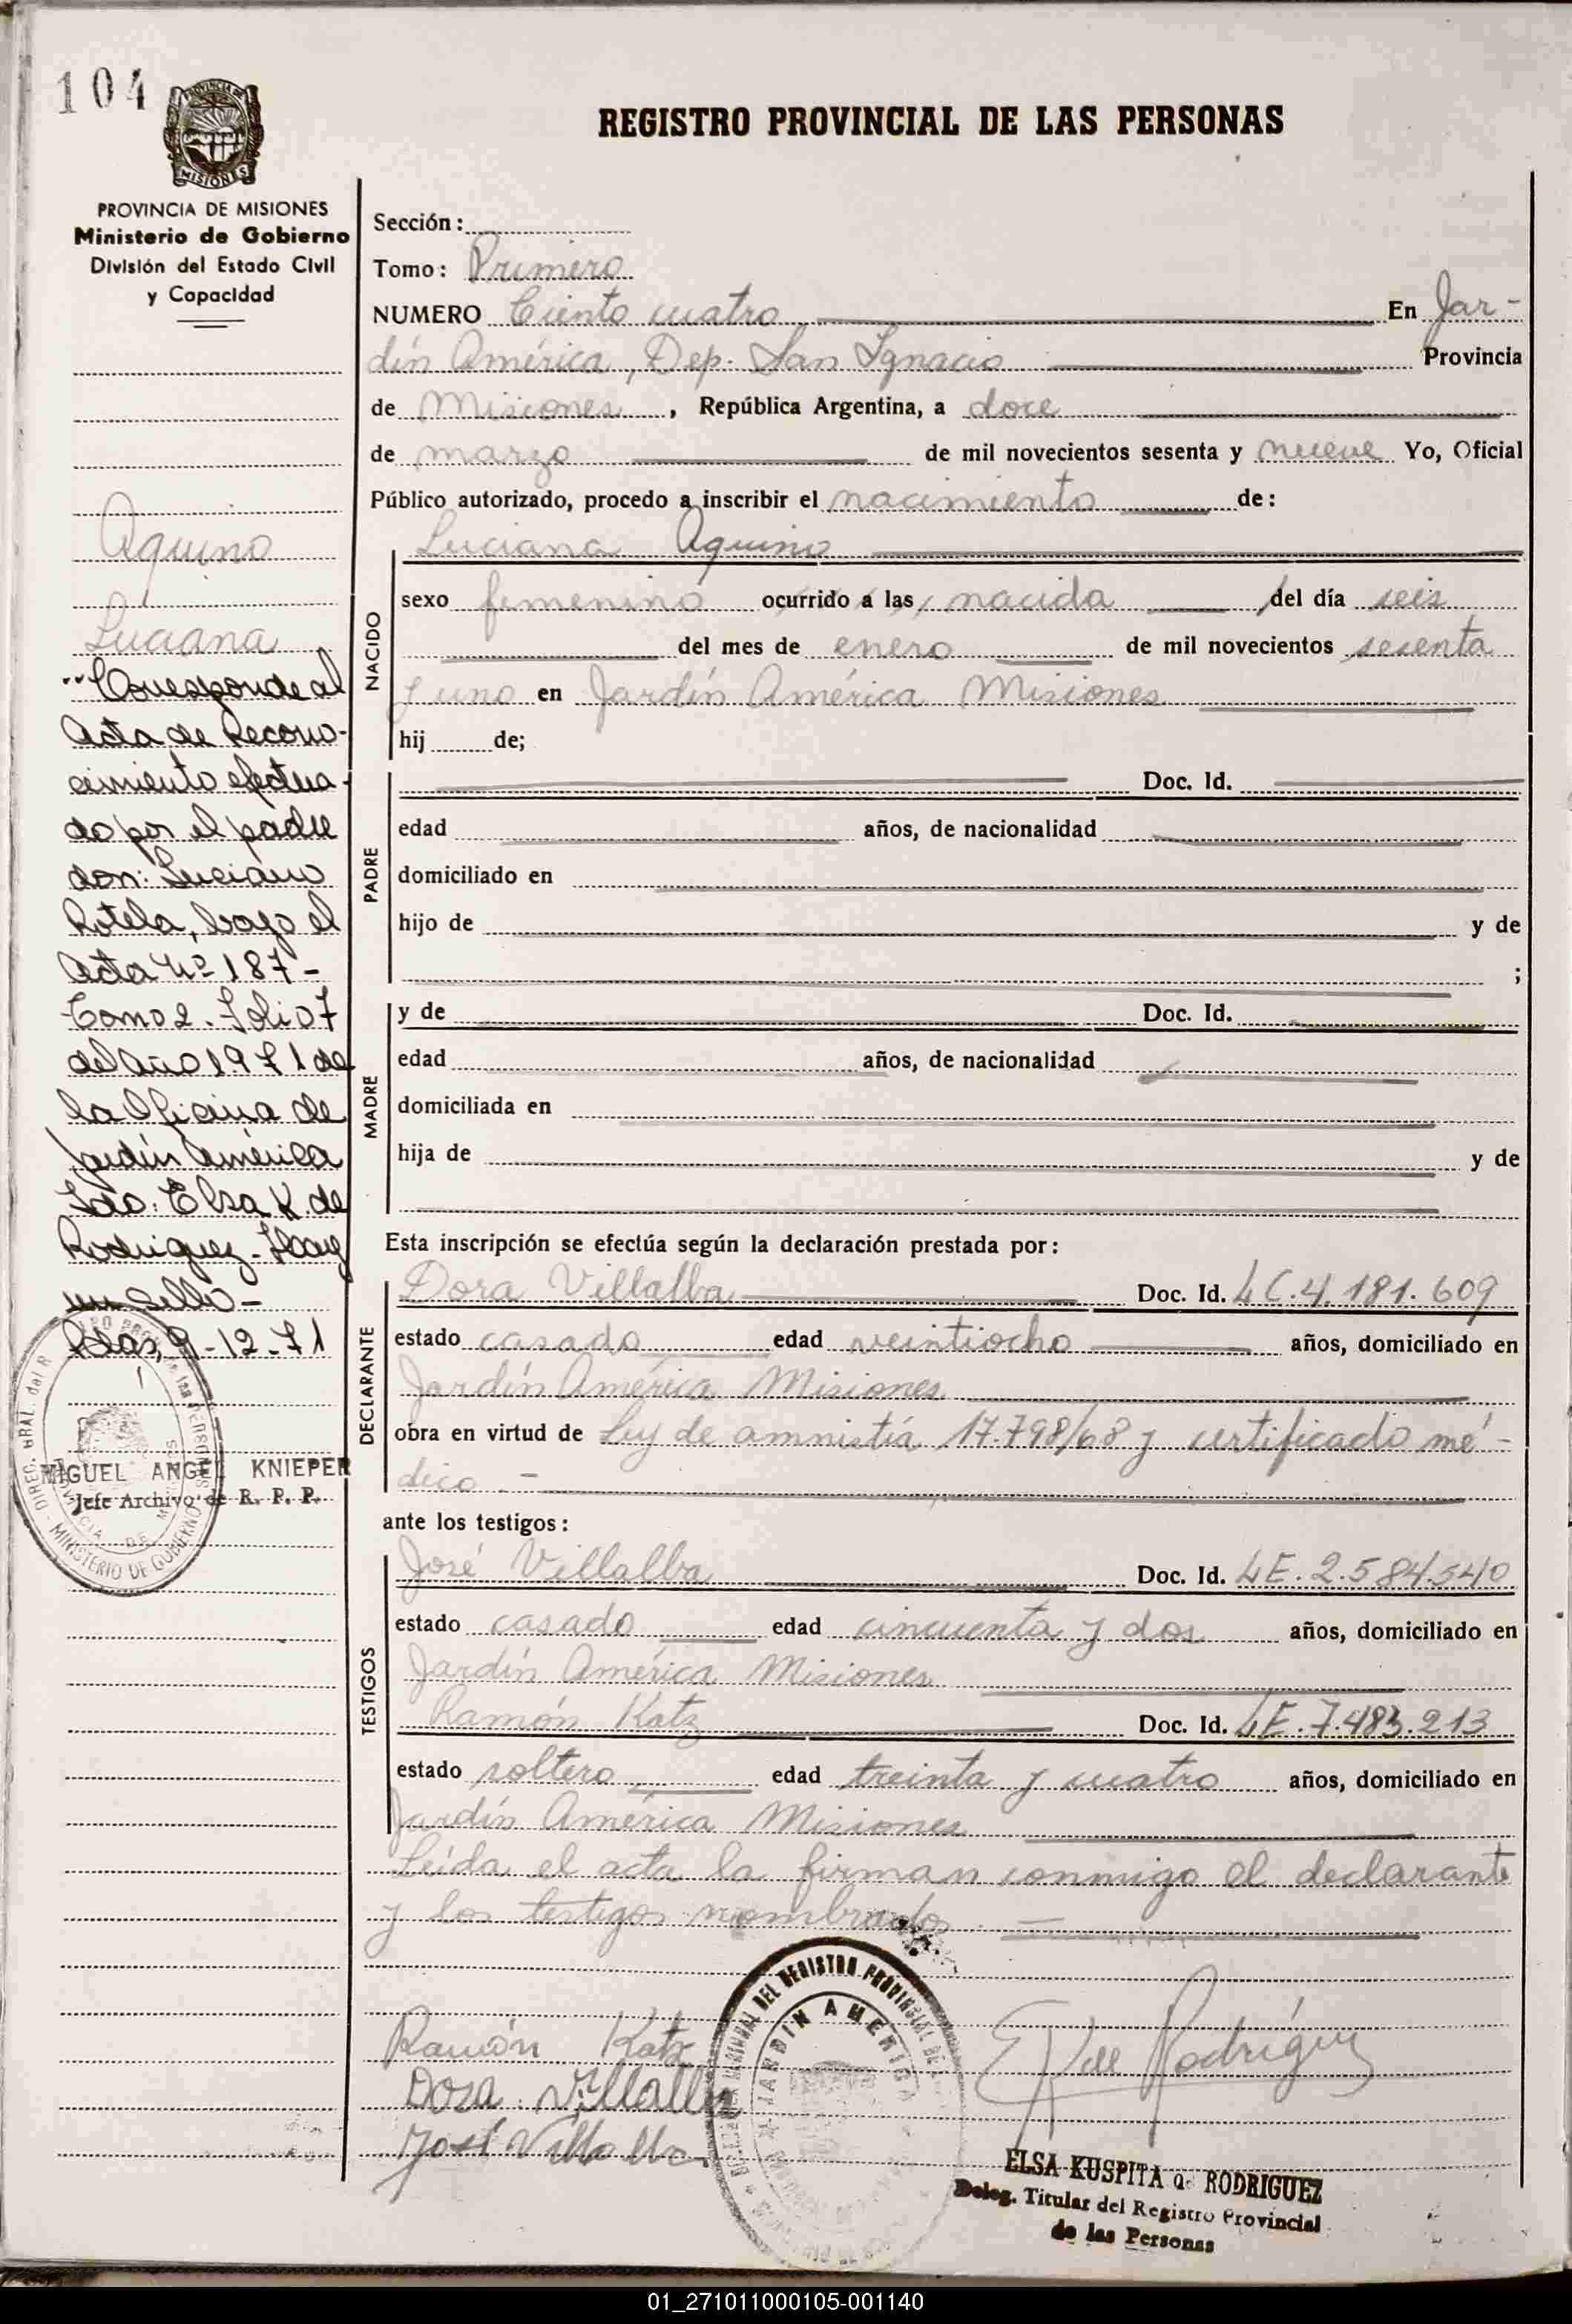 104
PROVINCIA DE MISIONES
Ministerio de Gobierno
División del Estado Civil
y Capacidad
REGISTRO PROVINCIAL DE LAS PERSONAS
Sección:
Tomo: Primero
NUMERO Ciento cuatro En Jar-
dín América, Dep. San Ignacio Provincia
de Misiones, República Argentina, a doce
de marzo de mil novecientos sesenta y nueve Yo, Oficial
Público autorizado, procedo a inscribir el nacimiento de:
NACIDO
Luciana Aquino
sexo femenino ocurrido a las nacida del día seis
del mes de enero de mil novecientos sesenta
y uno en Jardín América Misiones
hij de;
PADRE
Doc. Id.
edad años, de nacionalidad
domiciliado en
hijo de y de
;
MADRE
y de Doc. Id.
edad años, de nacionalidad
domiciliada en
hija de y de
Esta inscripción se efectúa según la declaración prestada por:
DECLARANTE
Dora Villalba Doc. Id. LC.4.181.609
estado casado edad veintiocho años, domiciliado en
Jardín América Misiones
obra en virtud de Ley de amnistía 17.798/68 y certificado mé-
dico.-
ante los testigos:
TESTIGOS
José Villalba Doc. Id. LE.2.584.540
estado casado edad cincuenta y dos años, domiciliado en
Jardín América Misiones
Ramón Katz Doc. Id. LE.7.483.213
estado soltero edad treinta y cuatro años, domiciliado en
Jardín América Misiones
Leída el acta la firman conmigo el declarante
y los testigos nombrados.-
Ramón Katz
Dora Villalba
José Villalba
JARDIN AMERICA
E K de Rodríguez
ELSA KUSPITA de RODRIGUEZ
Deleg. Titular del Registro Provincial
de las Personas
Aquino
Luciana
"Corresponde al
Acta de Recono-
cimiento efectua-
do por el padre
don: Luciano
Rotela, bajo el
Acta Nº 187-
Tomo 2. Folio 7
del año 1971 de
la Oficina de
Jardín América
Fdo. Elsa K. de
Rodriguez- Hay
un sello-
Pdas, 9-12-71
MIGUEL ANGEL KNIEPER
Jefe Archivo de R. P. P.
MINISTERIO DE GOBIERNO
01_271011000105-001140